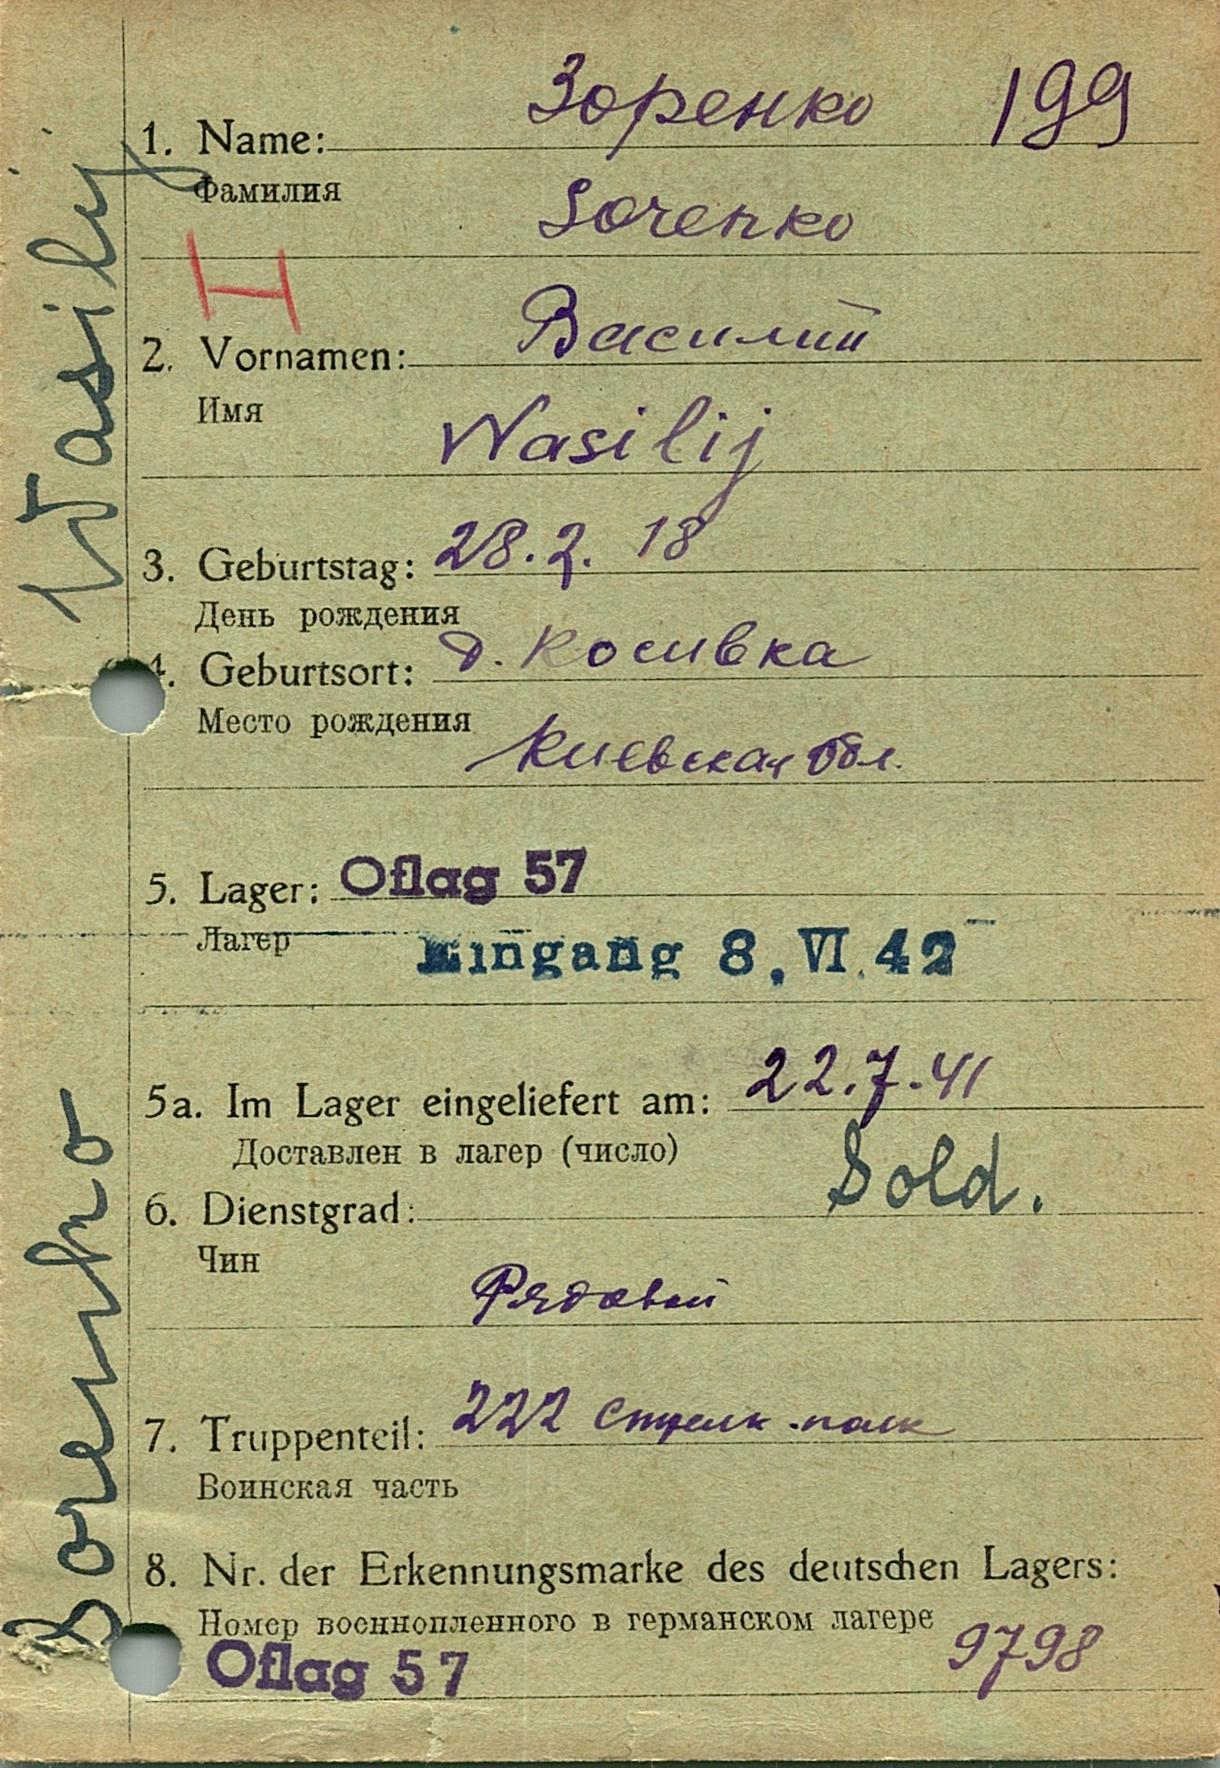 Зоренко 199
1. Name:
Фамилия
Sorenko
I
Василий
2. Vornamen:
Имя
Wasilij
3. Geburtstag: 28.2. 18
День рождения
4. Geburtsort: д. Косивка
Место рождения
Киевская обл.
5. Lager: Oflag 57
Лагер
Eingang 8. VI. 42
5a. Im Lager eingeliefert am: 22.7.41
Доставлен в лагер (число)
6. Dienstgrad: Sold.
Чин
Рядовой
7. Truppenteil: 222 стрелк. полк
Воинская часть
8. Nr. der Erkennungsmarke des deutschen Lagers:
Номер военнопленного в германском лагере
Oflag 57 9798
Sorenko Wasilij